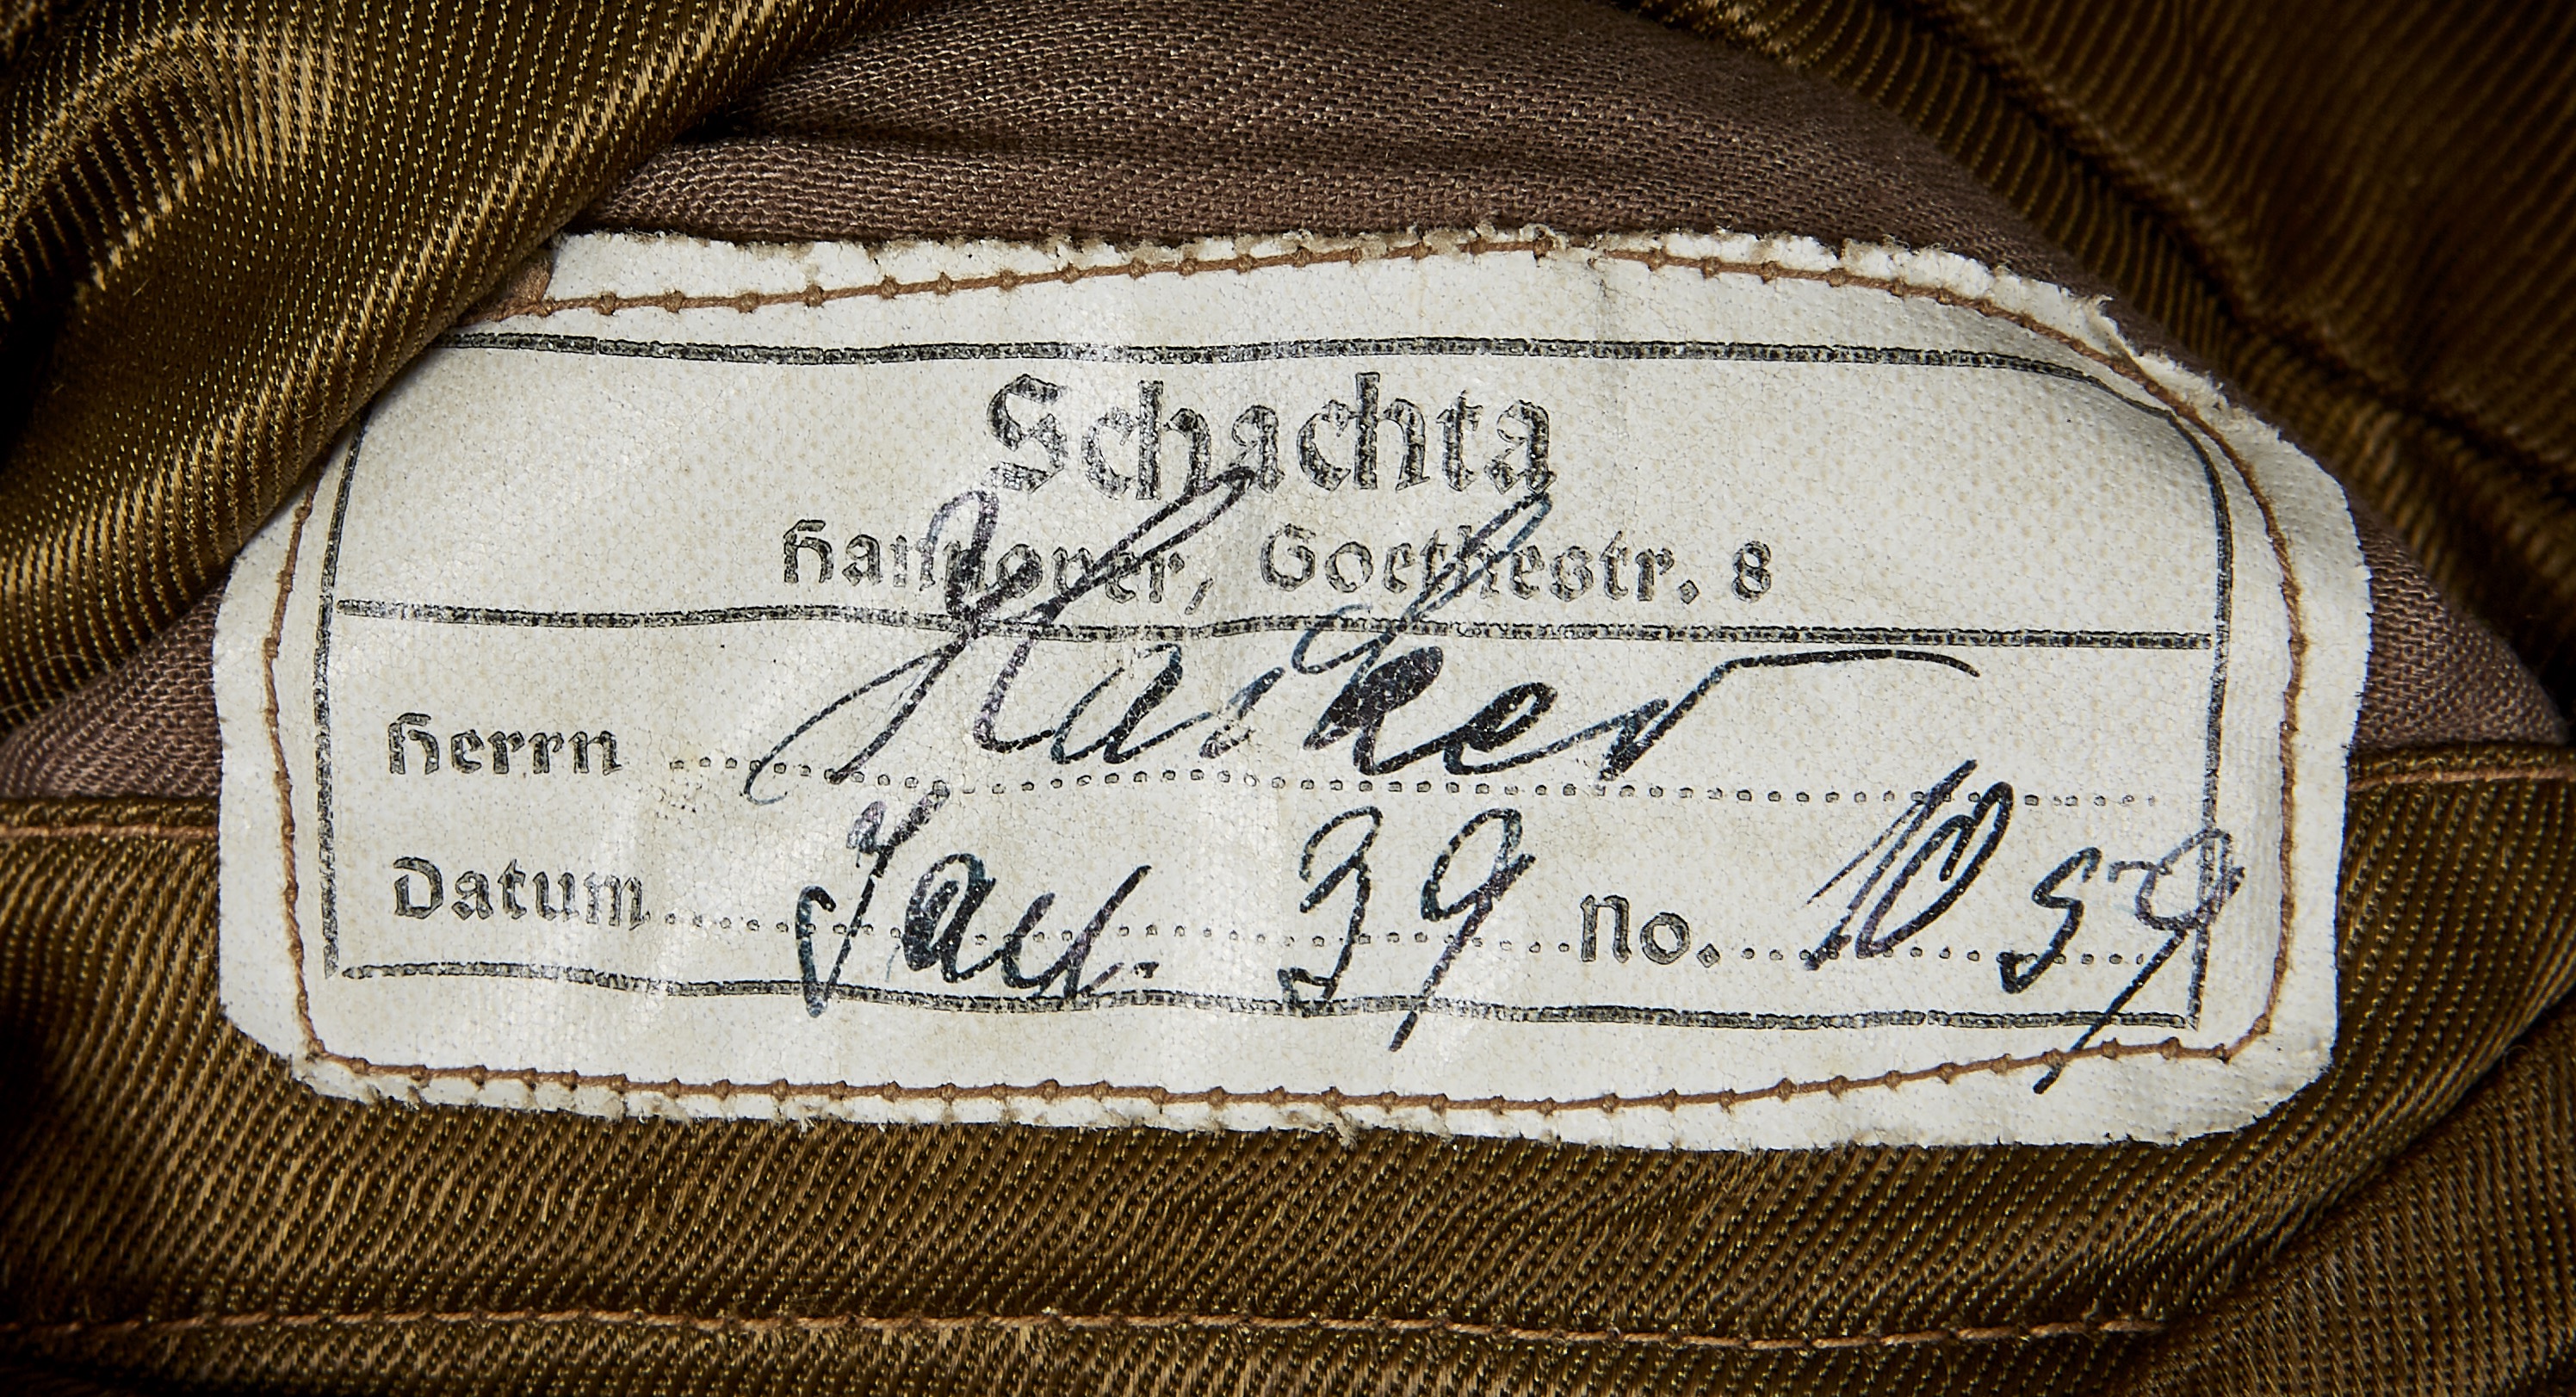 Schachta
Hannover, Goethestr. 8
Herrn Harker
Datum Jan. 39 No. 1059